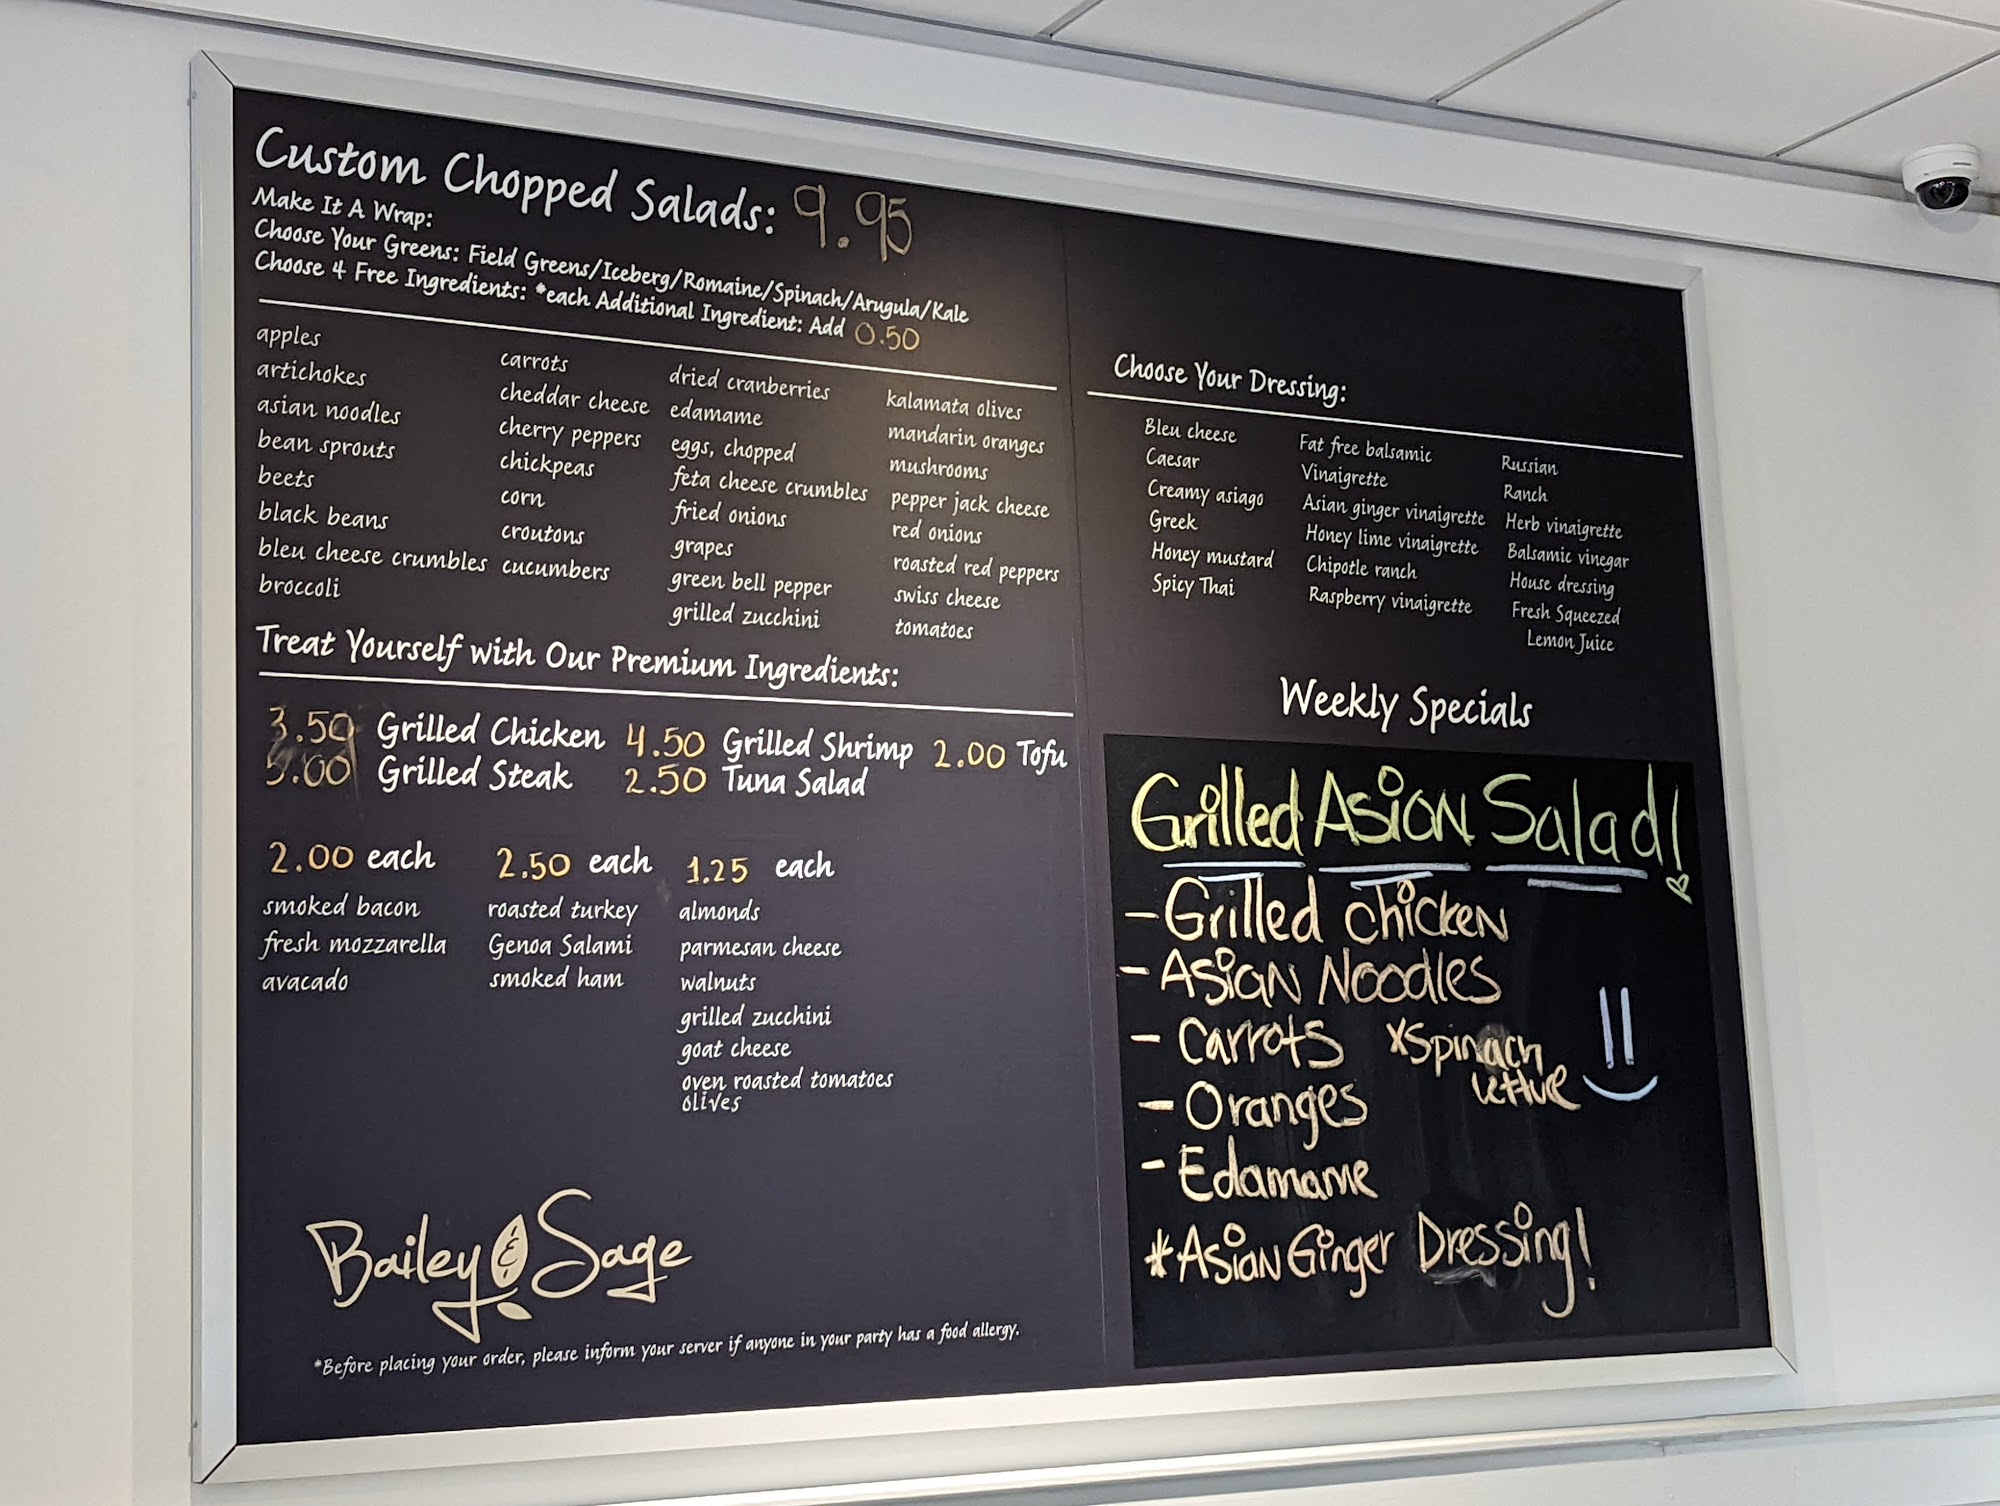 Custom Chopped Salads: 9.95
Make It A Wrap:
Choose Your Greens: Field Greens/Iceberg/Romaine/Spinach/Arugula/Kale
Choose 4 Free Ingredients: *each Additional Ingredient: Add 0.50
apples
artichokes
asian noodles
bean sprouts
beets
black beans
bleu cheese crumbles
broccoli
carrots
cheddar cheese
cherry peppers
chickpeas
corn
croutons
cucumbers
dried cranberries
edamame
eggs, chopped
feta cheese crumbles
fried onions
grapes
green bell pepper
grilled zucchini
kalamata olives
mandarin oranges
mushrooms
pepper jack cheese
red onions
roasted red peppers
swiss cheese
tomatoes
Treat Yourself with Our Premium Ingredients:
3.50 Grilled Chicken 4.50 Grilled Shrimp 2.00 Tofu
5.00 Grilled Steak 2.50 Tuna Salad
2.00 each
smoked bacon
fresh mozzarella
avacado
2.50 each
roasted turkey
Genoa Salami
smoked ham
1.25 each
almonds
parmesan cheese
walnuts
grilled zucchini
goat cheese
oven roasted tomatoes
olives
Bailey & Sage
*Before placing your order, please inform your server if anyone in your party has a food allergy.
Choose Your Dressing:
Bleu cheese
Caesar
Creamy asiago
Greek
Honey mustard
Spicy Thai
Fat free balsamic
Vinaigrette
Asian ginger vinaigrette
Honey lime vinaigrette
Chipotle ranch
Raspberry vinaigrette
Russian
Ranch
Herb vinaigrette
Balsamic vinegar
House dressing
Fresh Squeezed
Lemon Juice
Weekly Specials
Grilled Asian Salad!
- Grilled chicken
- Asian Noodles
- Carrots
- Oranges
- Edamame
*Spinach
Lettuce
*Asian Ginger Dressing!